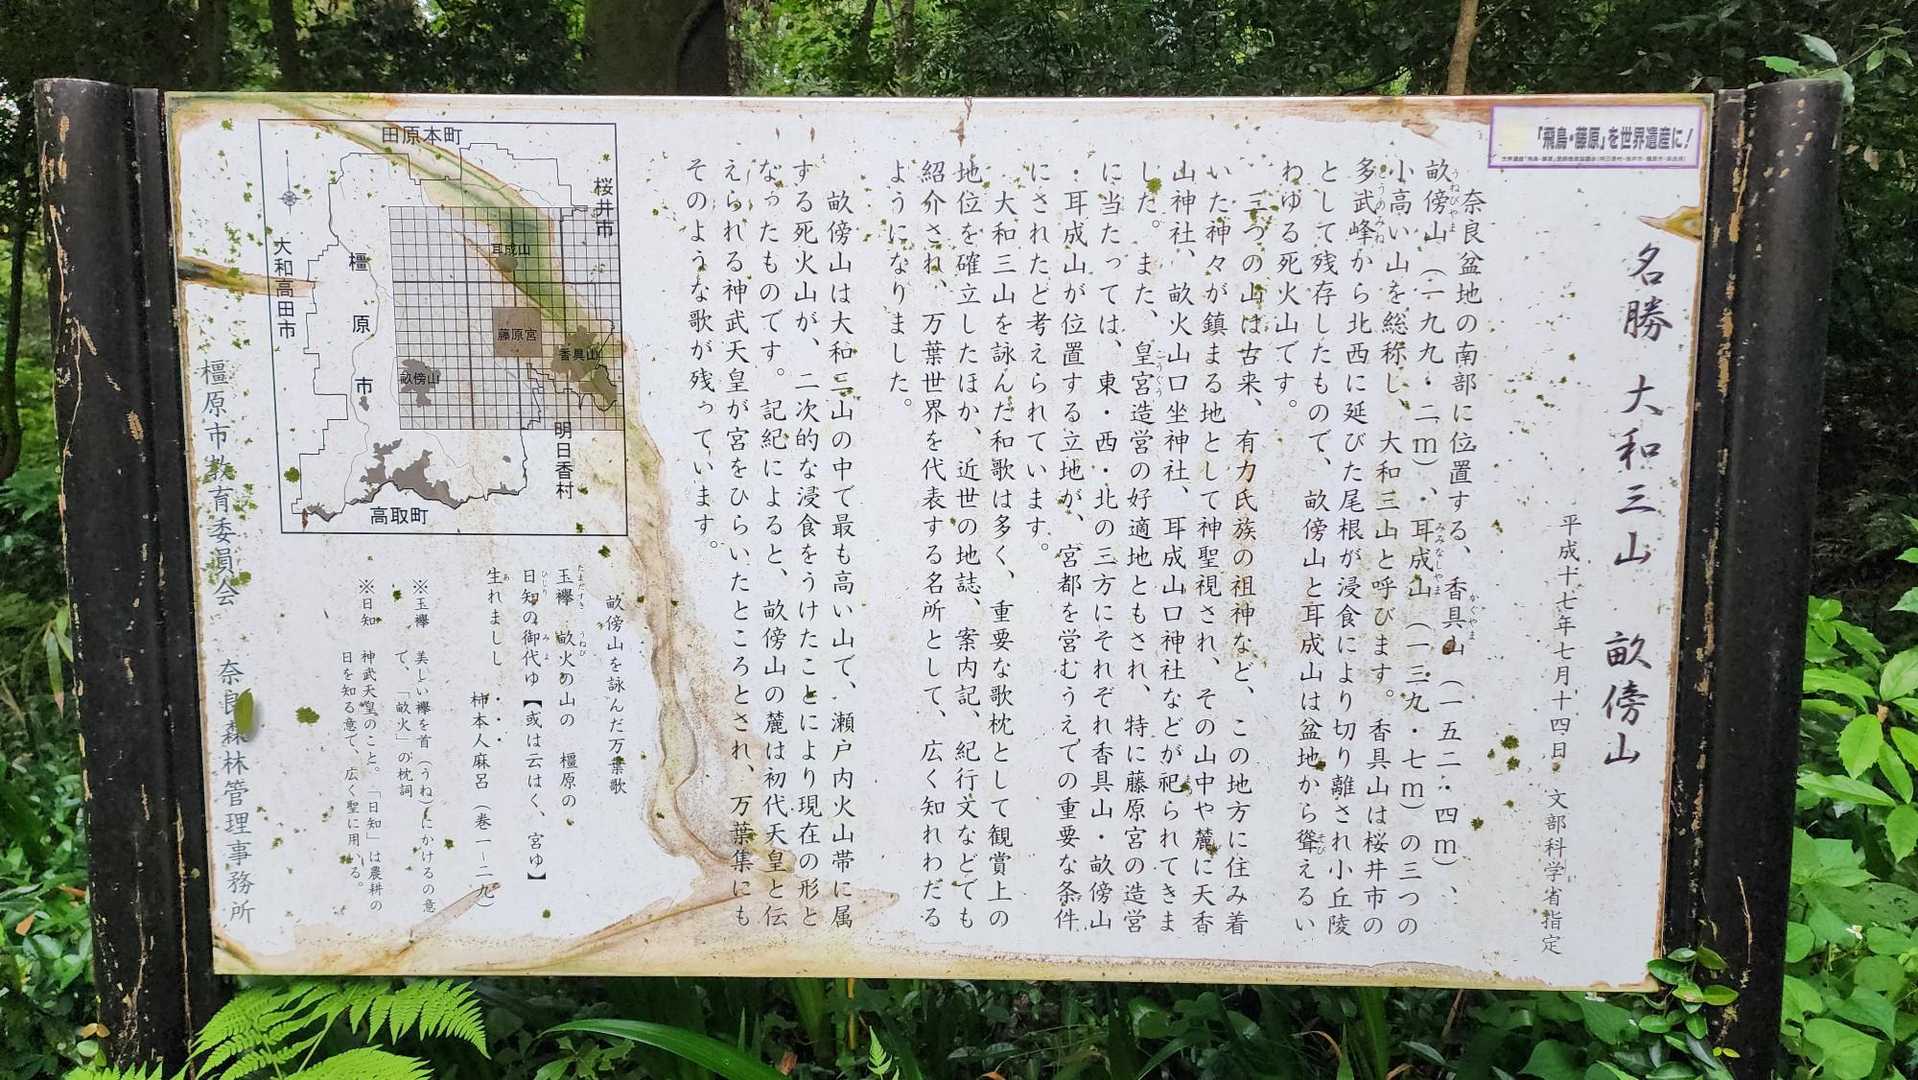 「飛鳥・藤原」を世界遺産に！
名勝 大和三山 畝傍山
平成十七年七月十四日 文部科学省指定
奈良盆地の南部に位置する、香具山（一五二・四ｍ）、
畝傍山（一九九・二ｍ）、耳成山（一三九・七ｍ）の三つの
小高い山を総称し、大和三山と呼びます。香具山は桜井市の
多武峰から北西に延びた尾根が浸食により切り離され小丘陵
として残存したもので、畝傍山と耳成山は盆地から聳えるい
わゆる死火山です。
三つの山は古来、有力氏族の祖神など、この地方に住み着
いた神々が鎮まる地として神聖視され、その山中や麓に天香
山神社、畝火山口坐神社、耳成山口神社などが祀られてきま
した。また、皇宮造営の好適地ともされ、特に藤原宮の造営
に当たっては、東・西・北の三方にそれぞれ香具山・畝傍山
・耳成山が位置する立地が、宮都を営むうえでの重要な条件
にされたと考えられています。
大和三山を詠んだ和歌は多く、重要な歌枕として観賞上の
地位を確立したほか、近世の地誌、案内記、紀行文などでも
紹介され、万葉世界を代表する名所として、広く知れわたる
ようになりました。
畝傍山は大和三山の中で最も高い山で、瀬戸内火山帯に属
する死火山が、二次的な浸食をうけたことにより現在の形と
なったものです。記紀によると、畝傍山の麓は初代天皇と伝
えられる神武天皇が宮をひらいたところとされ、万葉集にも
そのような歌が残っています。
畝傍山を詠んだ万葉歌
玉襷 畝火の山の 橿原の
日知の御代ゆ【或は云はく、宮ゆ】
生れましし ・・・
柿本人麻呂（巻一－二九）
※玉襷 美しい襷を首（うね）にかけるの意
で、「畝火」の枕詞
※日知 神武天皇のこと。「日知」は農耕の
日を知る意で、広く聖に用いる。
田原本町
桜井市
大和高田市
橿原市
耳成山
藤原宮
香具山
畝傍山
明日香村
高取町
橿原市教育委員会 奈良森林管理事務所